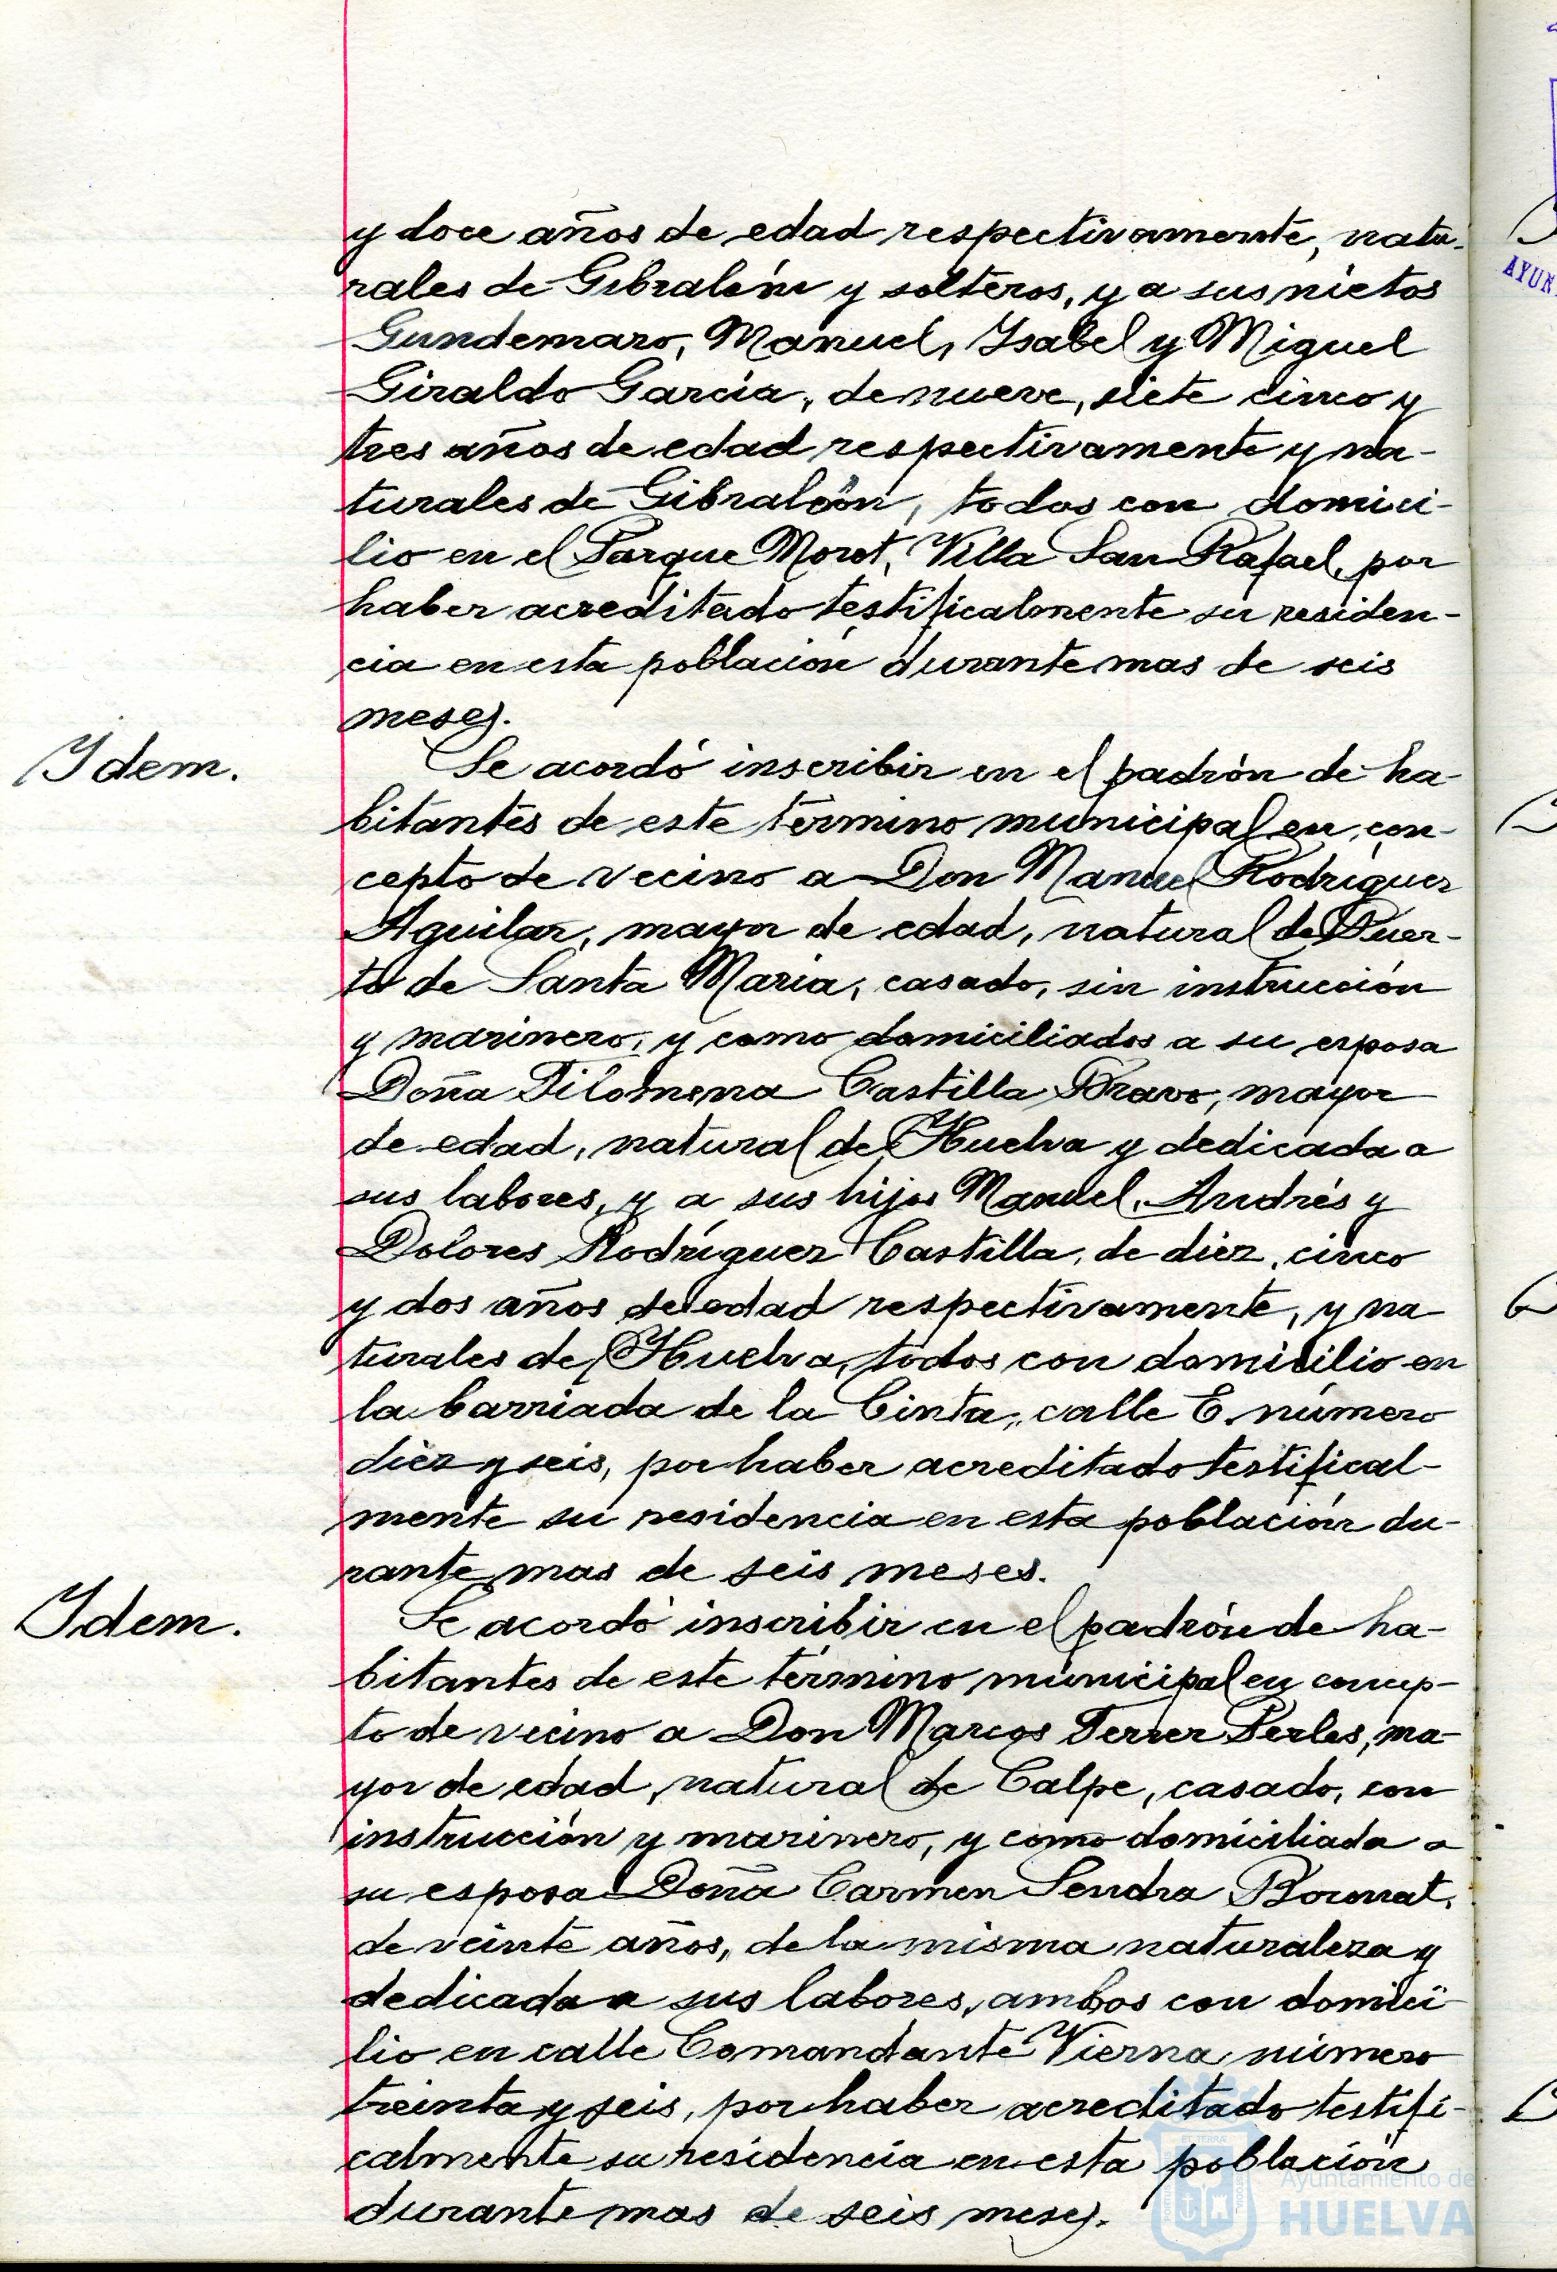 y doce años de edad respectivamente, natu-
rales de Gibraleón y solteros, y a sus nietos
Gundemaro, Manuel, Isabel y Miguel
Giraldo García, de nueve, siete cinco y
tres años de edad respectivamente y na-
turales de Gibraleón, todos con domici-
lio en el Parque Moret, Villa San Rafael, por
haber acreditado testificalmente su residen-
cia en esta población durante mas de seis
meses.
Idem.
Se acordó inscribir en el padrón de ha-
bitantes de este termino municipal en con-
cepto de vecino a Don Manuel Rodríguez
Aguilar, mayor de edad, natural de Puer-
to de Santa María, casado, sin instrucción
y marinero, y como domiciliados a su esposa
Doña Filomena Castilla Bravo, mayor
de edad, natural de Huelva y dedicada a
sus labores, y a sus hijos Manuel, Andrés y
Dolores Rodríguez Castilla, de diez, cinco
y dos años de edad respectivamente, y na-
turales de Huelva, todos con domicilio en
la barriada de la Cinta, calle E. número
diez y seis, por haber acreditado testifical-
mente su residencia en esta población du-
rante mas de seis meses.
Idem.
Se acordó inscribir en el padrón de ha-
bitantes de este término municipal en concep-
to de vecino a Don Marcos Ferrer Perles, ma-
yor de edad, natural de Calpe, casado, con
instrucción y marinero, y como domiciliada a
su esposa Doña Carmen Sendra Boronat,
de veinte años, de la misma naturaleza y
dedicada a sus labores, ambos con domici-
lio en calle Comandante Vierna número
treinta y seis, por haber acreditado testifi-
calmente su residencia en esta población
durante mas de seis meses.
Ayuntamiento de
HUELVA